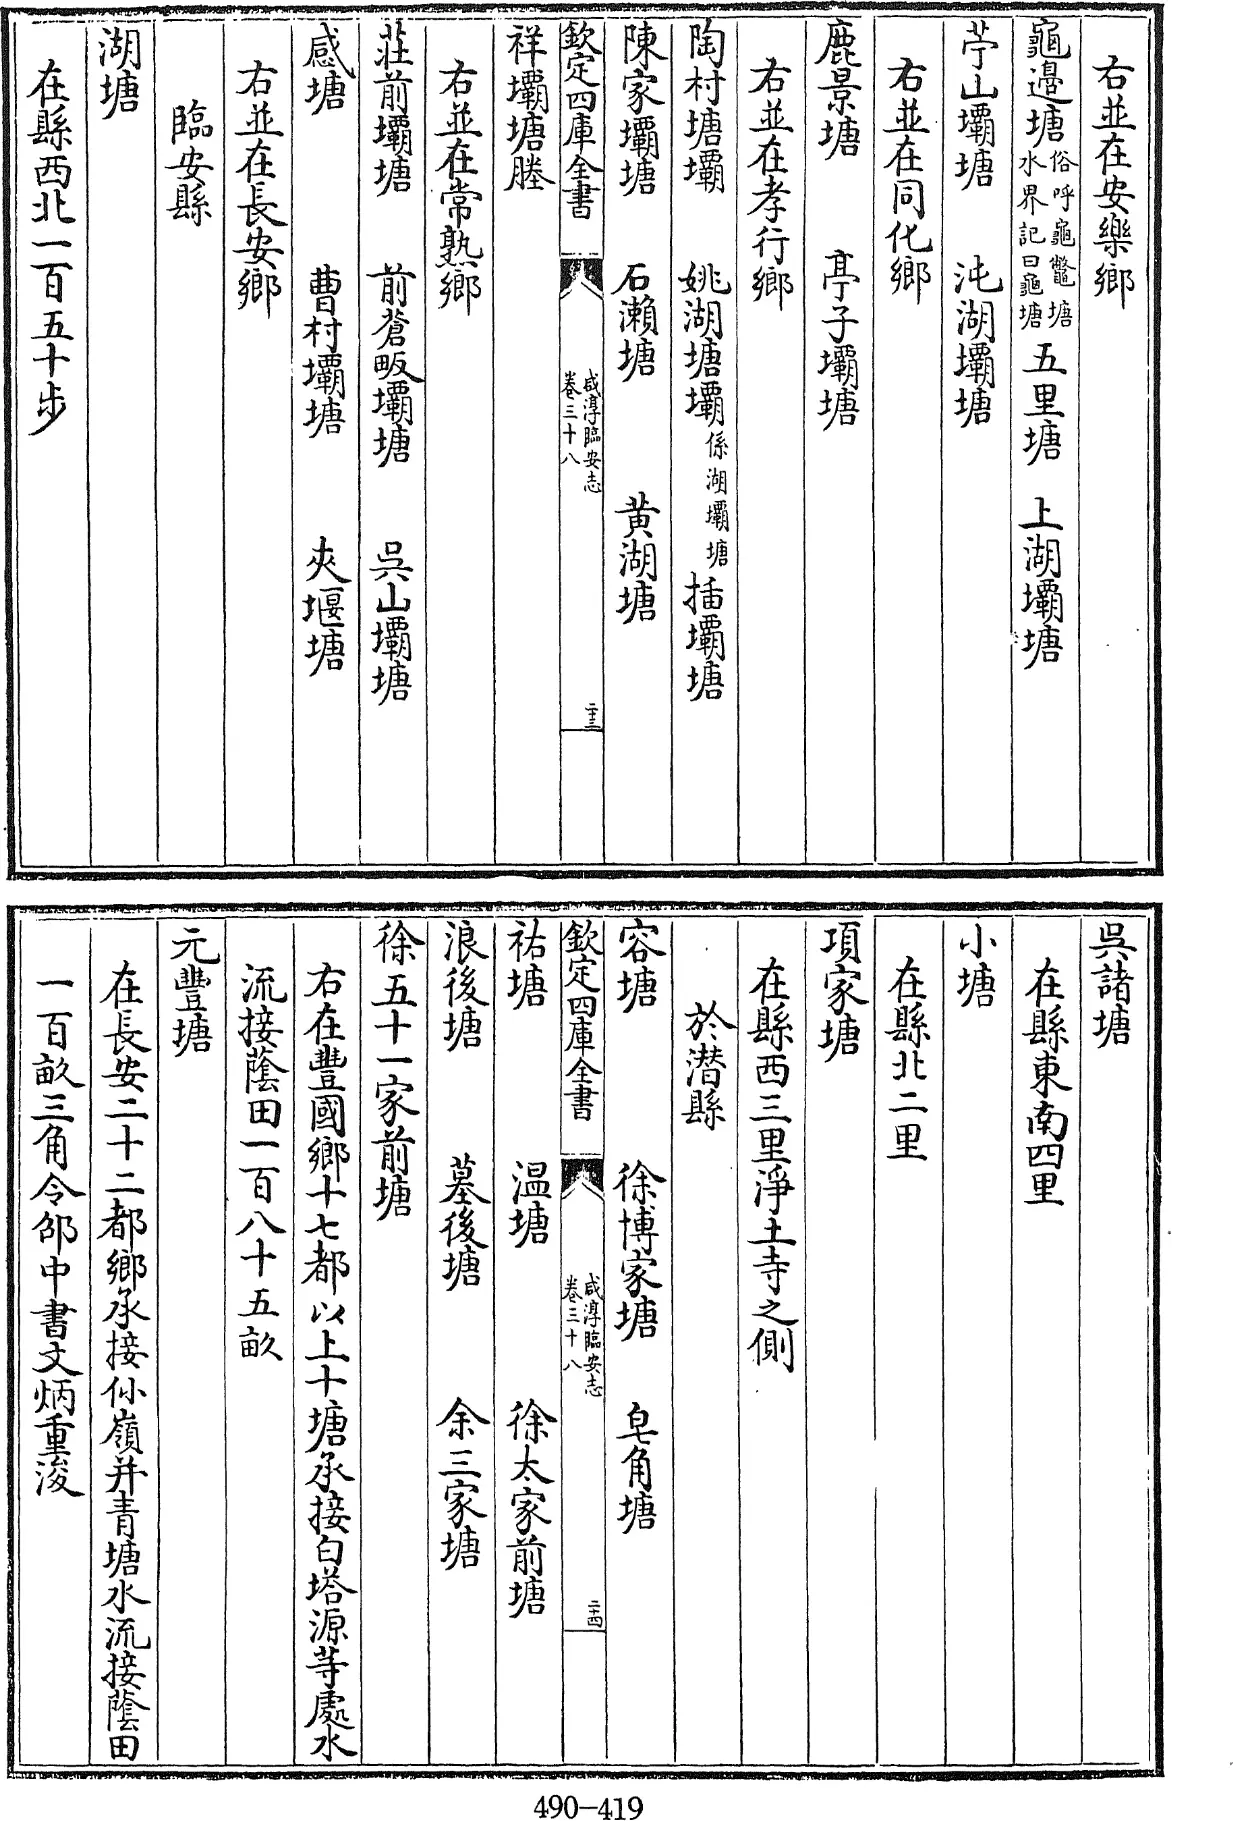 右並在安樂鄉
龜邉塘俗呼龜鼈塘水界記曰龜塘 五里塘 上湖壩塘
苧山壩塘 沌湖壩塘
右並在同化鄉
鹿景塘 亭子壩塘
右並在孝行鄉
陶村塘壩 姚湖塘壩係湖壩塘 插壩塘
陳家壩塘 石瀬塘 黄湖塘
欽定四庫全書 咸淳臨安志卷三十八 二十三
祥壩塘塍
右並在常熟鄉
莊前壩塘 前蒼畈壩塘 吳山壩塘
感塘 曹村壩塘 夾堰塘
右並在長安鄉
臨安縣
湖塘
在縣西北一百五十步
吳諸塘
在縣東南四里
小塘
在縣北二里
項家塘
在縣西三里淨土寺之側
於潛縣
容塘 徐博家塘 皂角塘
欽定四庫全書 咸淳臨安志卷三十八 二十四
祐塘 温塘 徐太家前塘
浪後塘 墓後塘 余三家塘
徐五十一家前塘
右在豐國鄉十七都以上十塘承接白塔源等處水
流接蔭田一百八十五畝
元豐塘
在長安二十二都鄉承接仆嶺并青塘水流接蔭田
一百畝三角令邰中書文炳重浚
490-419